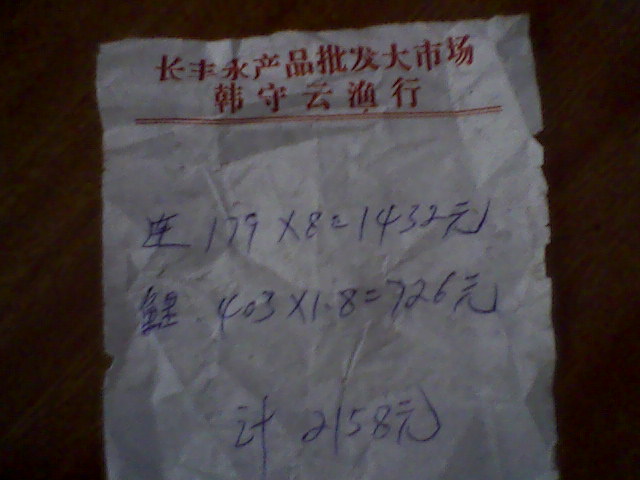 长丰水产品批发大市场
韩守云渔行
连 179×8=1432元
鲲 403×1.8=726元
计 2158元